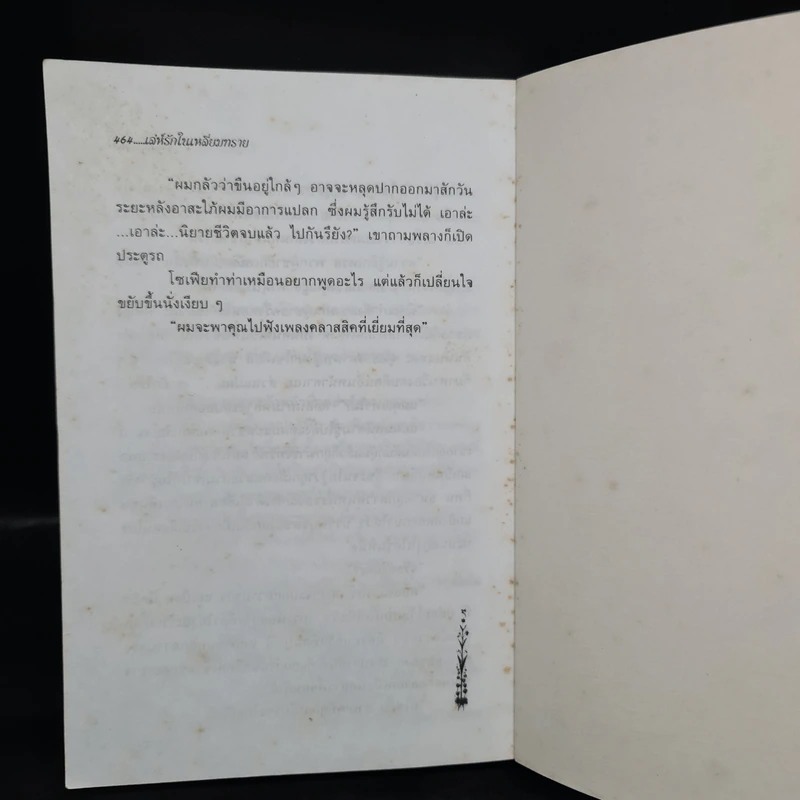 464.....เล่ห์รักในเหลี่ยมทราย
“ผมกลัวว่าขืนอยู่ใกล้ๆ อาจจะหลุดปากออกมาสักวัน
ระยะหลังอาสะใภ้ผมมีอาการแปลก ซึ่งผมรู้สึกรับไม่ได้ เอาล่ะ
...เอาล่ะ...นิยายชีวิตจบแล้ว ไปกันรึยัง?” เขาถามพลางก็เปิด
ประตูรถ
โซเฟียทำท่าเหมือนอยากพูดอะไร แต่แล้วก็เปลี่ยนใจ
ขยับขึ้นนั่งเงียบ ๆ
“ผมจะพาคุณไปฟังเพลงคลาสสิคที่เยี่ยมที่สุด”